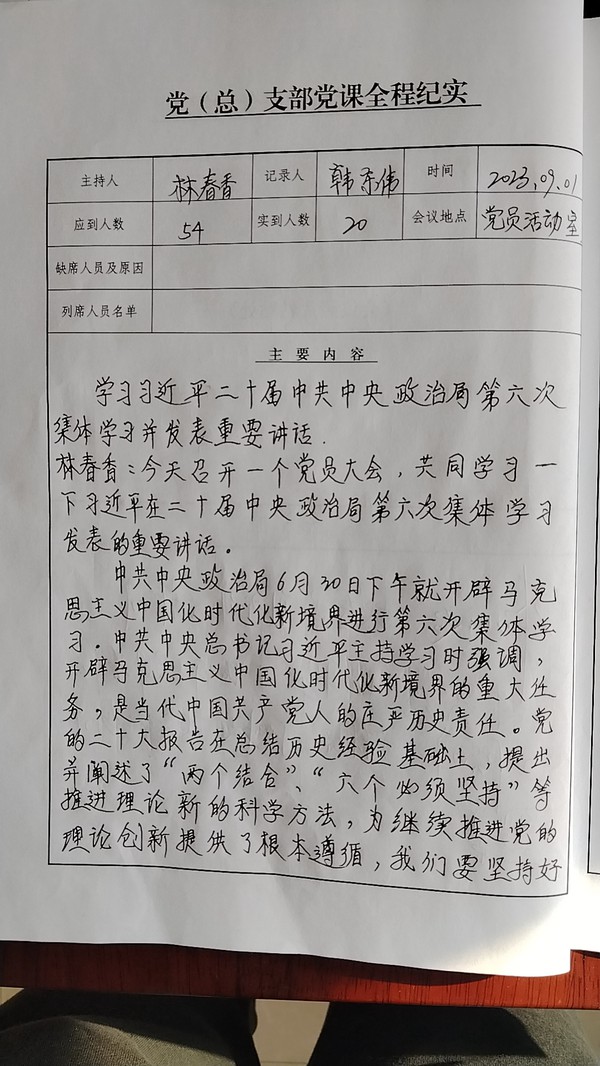 党（总）支部党课全程纪实
主持人 林春香 记录人 韩东伟 时间 2023.09.01
应到人数 54 实到人数 20 会议地点 党员活动室
缺席人员及原因
列席人员名单
主要内容
学习习近平二十届中共中央政治局第六次
集体学习并发表重要讲话.
林春香：今天召开一个党员大会，共同学习一
下习近平在二十届中央政治局第六次集体学习
发表的重要讲话。
中共中央政治局6月30日下午就开辟马克
思主义中国化时代化新境界进行第六次集体学
习.中共中央总书记习近平主持学习时强调，
开辟马克思主义中国化时代化新境界的重大任
务，是当代中国共产党人的庄严历史责任。党
的二十大报告在总结历史经验基础上，提出
并阐述了“两个结合”、“六个必须坚持”等
推进理论新的科学方法，为继续推进党的
理论创新提供了根本遵循，我们要坚持好